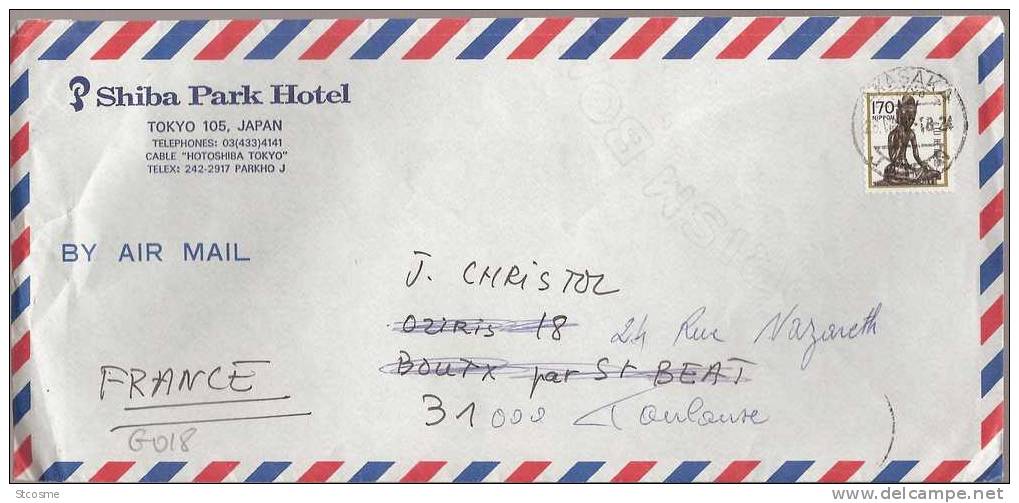 Shiba Park Hotel
TOKYO 105, JAPAN
TELEPHONES: 03(433)4141
CABLE "HOTOSHIBA TOKYO"
TELEX: 242-2917 PARKHO J
170
NIPPON
BY AIR MAIL
J. CHRISTOL
OZIRIS 18 24 Rue Nazareth
BOUTX par St BEAT
31000 Toulouse
FRANCE
G018
Stcosme
www.delcampe.net